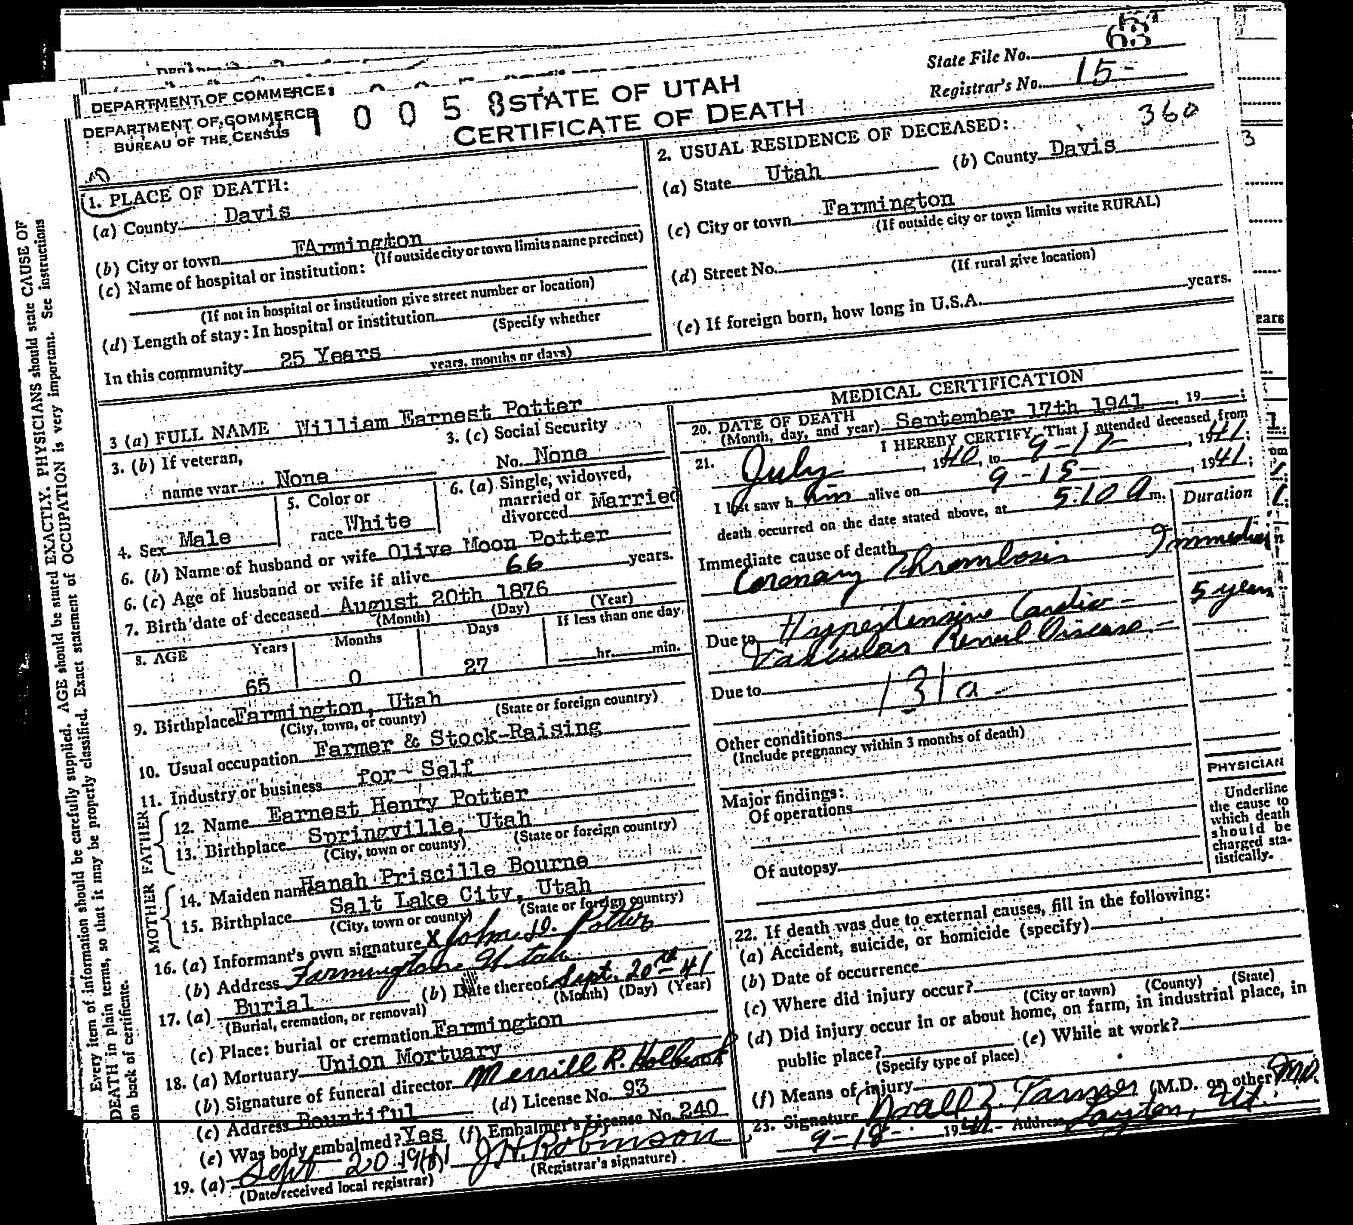 State File No. 63
Registrar's No. 15-
DEPARTMENT OF COMMERCE
DEPARTMENT OF COMMERCE
BUREAU OF THE CENSUS
1 0 0 5 8
STATE OF UTAH
CERTIFICATE OF DEATH
360
1. PLACE OF DEATH:
(a) County Davis
(b) City or town FArmington
(If outside city or town limits name precinct)
(c) Name of hospital or institution:
(If not in hospital or institution give street number or location)
(d) Length of stay: In hospital or institution
(Specify whether
In this community 25 Years
years, months or days)
2. USUAL RESIDENCE OF DECEASED:
(a) State Utah (b) County Davis
(c) City or town Farmington
(If outside city or town limits write RURAL)
(d) Street No.
(If rural give location)
(e) If foreign born, how long in U.S.A. years.
3 (a) FULL NAME William Earnest Potter
3. (b) If veteran,
name war None
3. (c) Social Security
No. None
4. Sex Male
5. Color or
race White
6. (a) Single, widowed,
married or
divorced Married
6. (b) Name of husband or wife Olive Moon Potter
6. (c) Age of husband or wife if alive 66 years.
7. Birth date of deceased August 20th 1876
(Month) (Day) (Year)
8. AGE Years Months Days If less than one day
65 0 27 hr. min.
9. Birthplace Farmington, Utah
(City, town, or county) (State or foreign country)
10. Usual occupation Farmer & Stock-Raising
11. Industry or business for - Self
FATHER
12. Name Earnest Henry Potter
13. Birthplace Springville, Utah
(City, town or county) (State or foreign country)
MOTHER
14. Maiden name Hanah Priscille Bourne
15. Birthplace Salt Lake City, Utah
(City, town or county) (State or foreign country)
16. (a) Informant's own signature X John D. Potter
(b) Address Farmington Utah
17. (a) Burial (b) Date thereof Sept. 20th 41
(Burial, cremation, or removal) (Month) (Day) (Year)
(c) Place: burial or cremation Farmington
18. (a) Mortuary Union Mortuary
(b) Signature of funeral director Merrill R. Holbrook
(c) Address Bountiful (d) License No. 93
(e) Was body embalmed? Yes (f) Embalmer's License No. 240
19. (a) Sept 20 1941 (b) J H Robinson
(Date received local registrar) (Registrar's signature)
MEDICAL CERTIFICATION
20. DATE OF DEATH
(Month, day, and year) September 17th 1941, 19 ;
21. I HEREBY CERTIFY, That I attended deceased from
July, 1940, to 9-17-, 1941;
I last saw h im alive on 9-15-, 1941;
death occurred on the date stated above, at 5:10 A m.
Duration
Immediate cause of death
Coronary Thrombosis
Due to Hypertensive Cardio- 5 years
Vascular Renal Disease
Due to 131a
Other conditions
(Include pregnancy within 3 months of death)
Major findings:
Of operations
Of autopsy
PHYSICIAN
Underline
the cause to
which death
should be
charged sta-
tistically.
22. If death was due to external causes, fill in the following:
(a) Accident, suicide, or homicide (specify)
(b) Date of occurrence
(c) Where did injury occur?
(City or town) (County) (State)
(d) Did injury occur in or about home, on farm, in industrial place, in
public place? (e) While at work?
(Specify type of place)
(f) Means of injury
23. Signature Tanner (M.D. or other M.D.
9-18- 1941 Address Layton, Ut.
Every item of information should be carefully supplied. AGE should be stated EXACTLY. PHYSICIANS should state CAUSE OF
DEATH in plain terms, so that it may be properly classified. Exact statement of OCCUPATION is very important. See instructions
on back of certificate.